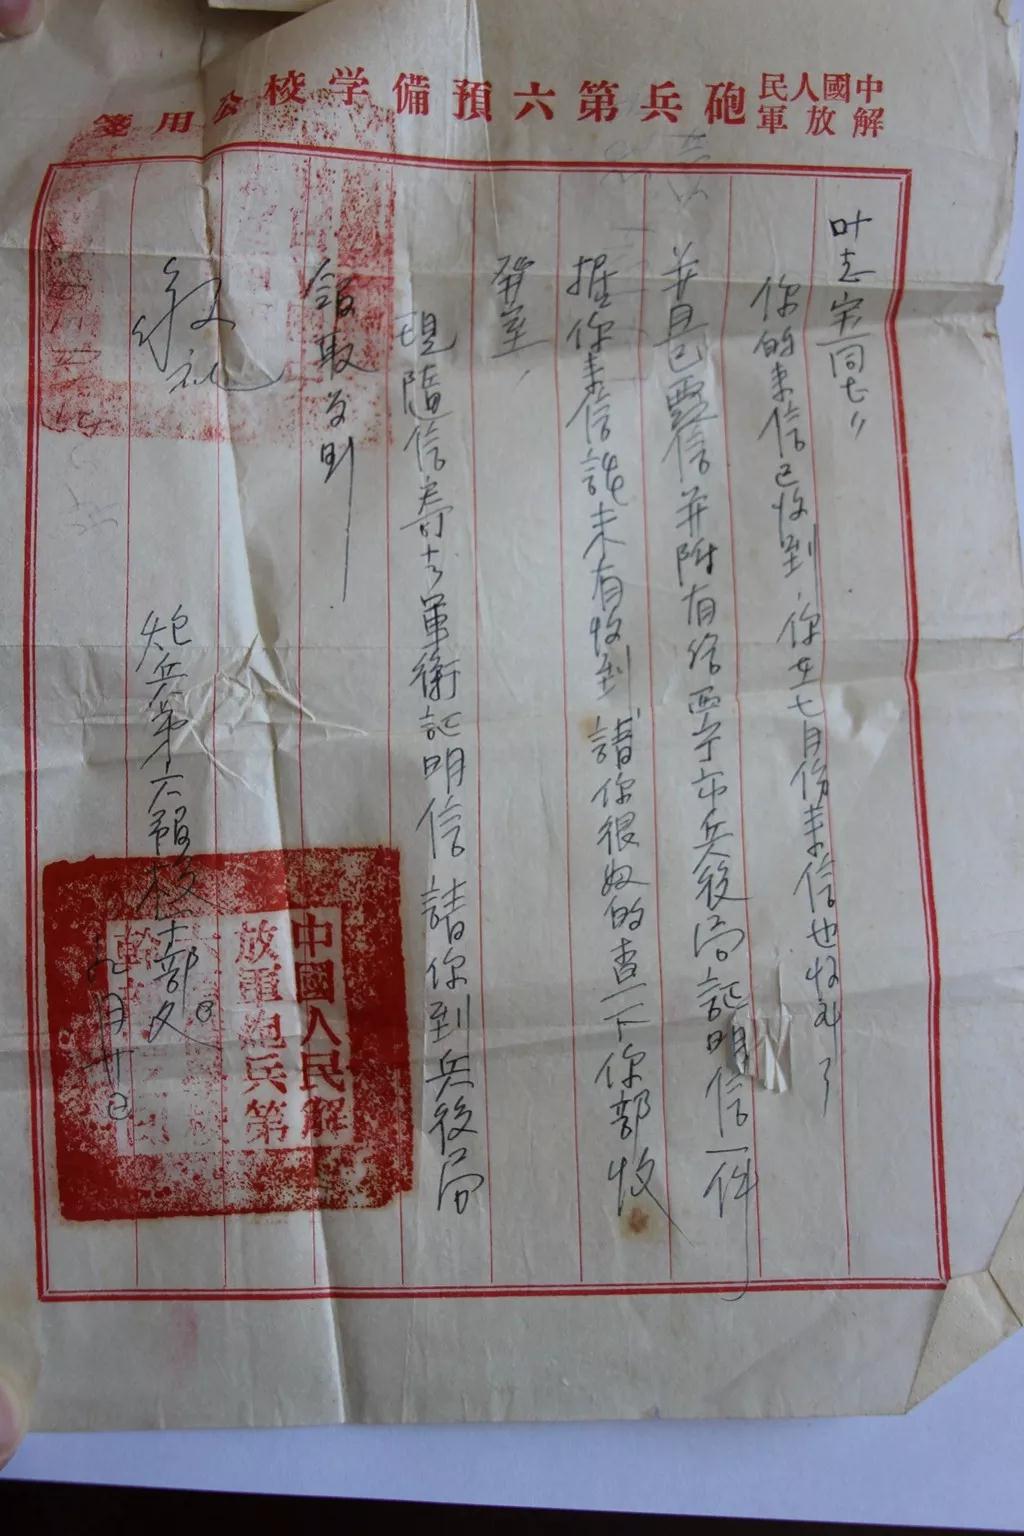 中國人民解放軍砲兵第六預備学校公用箋
叶志宏同志〃
你的来信已收到，你在七月份来信也收到了
并且已覆信并附有给西宁市兵役局証明信一件
据你来信説未有收到 請你很好的查一下你部收
發室，
現隨信寄去軍衔証明信 請你到兵役局
領取为盼
敬礼
炮兵第六預校干部处
九月廿日
中國人民解
放軍砲兵第